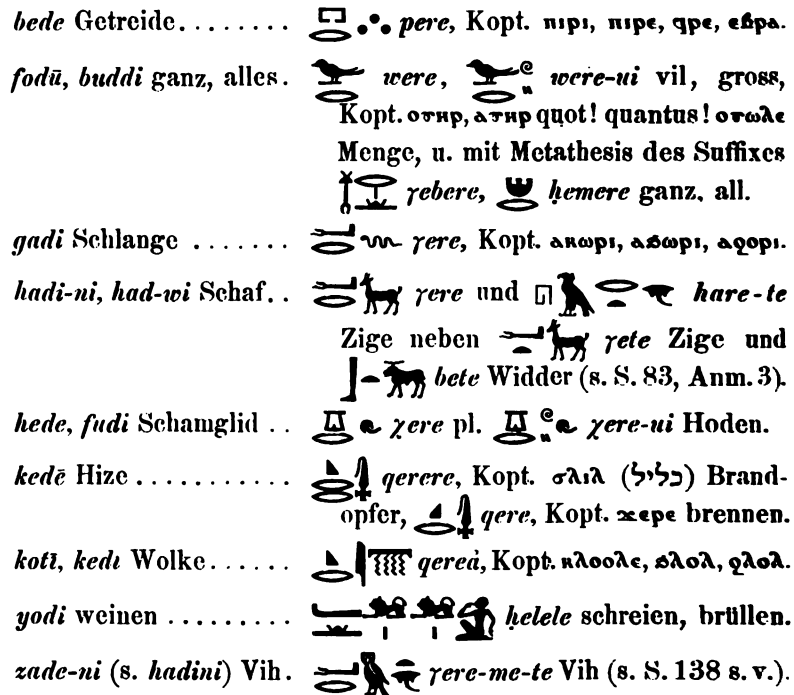 bede Getreide . . . . . . . . pere, Kopt. ⲡⲓⲣⲓ, ⲡⲓⲣⲉ, ϥⲣⲉ, ⲉⲃⲣⲁ.
fodū, buddi ganz, alles . were, were-ui vil, gross,
Kopt. ⲟⲩⲏⲣ, ⲁⲩⲏⲣ quot! quantus! ⲟⲩⲱⲗⲉ
Menge, u. mit Metathesis des Suffixes
χebere, ḥemere ganz, all.
gadi Schlange . . . . . . . γere, Kopt. ⲁⲕⲱⲣⲓ, ⲁϧⲱⲣⲓ, ⲁϩⲟⲣⲓ.
hadi-ni, had-wi Schaf . . γere und hare-te
Zige neben γete Zige und
bete Widder (s. S. 83, Anm. 3).
hede, fudi Schamglid . . χere pl. χere-ui Hoden.
kedē Hize . . . . . . . . . . . qerere, Kopt. ϭⲗⲓⲗ (כליל) Brand-
opfer, qere, Kopt. ϫⲉⲣⲉ brennen.
kotī, kedı Wolke . . . . . . qereȧ, Kopt. ⲕⲗⲟⲟⲗⲉ, ϧⲗⲟⲗ, ϩⲗⲟⲗ.
yodi weinen . . . . . . . . . ḥelele schreien, brüllen.
zade-ni (s. hadini) Vih . γere-me-te Vih (s. S. 138 s. v.).